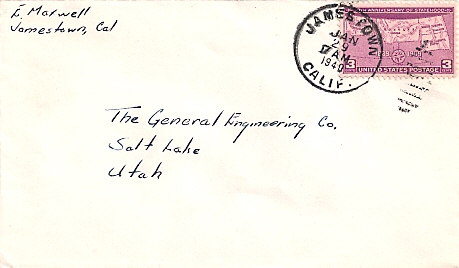 E. Maxwell
Jamestown, Cal
JAMESTOWN
JAN
29
7 AM
1940
CALIF.
ANNIVERSARY OF STATEHOOD
1889 1939
3 UNITED STATES POSTAGE 3
The General Engineering Co.
Salt Lake
Utah